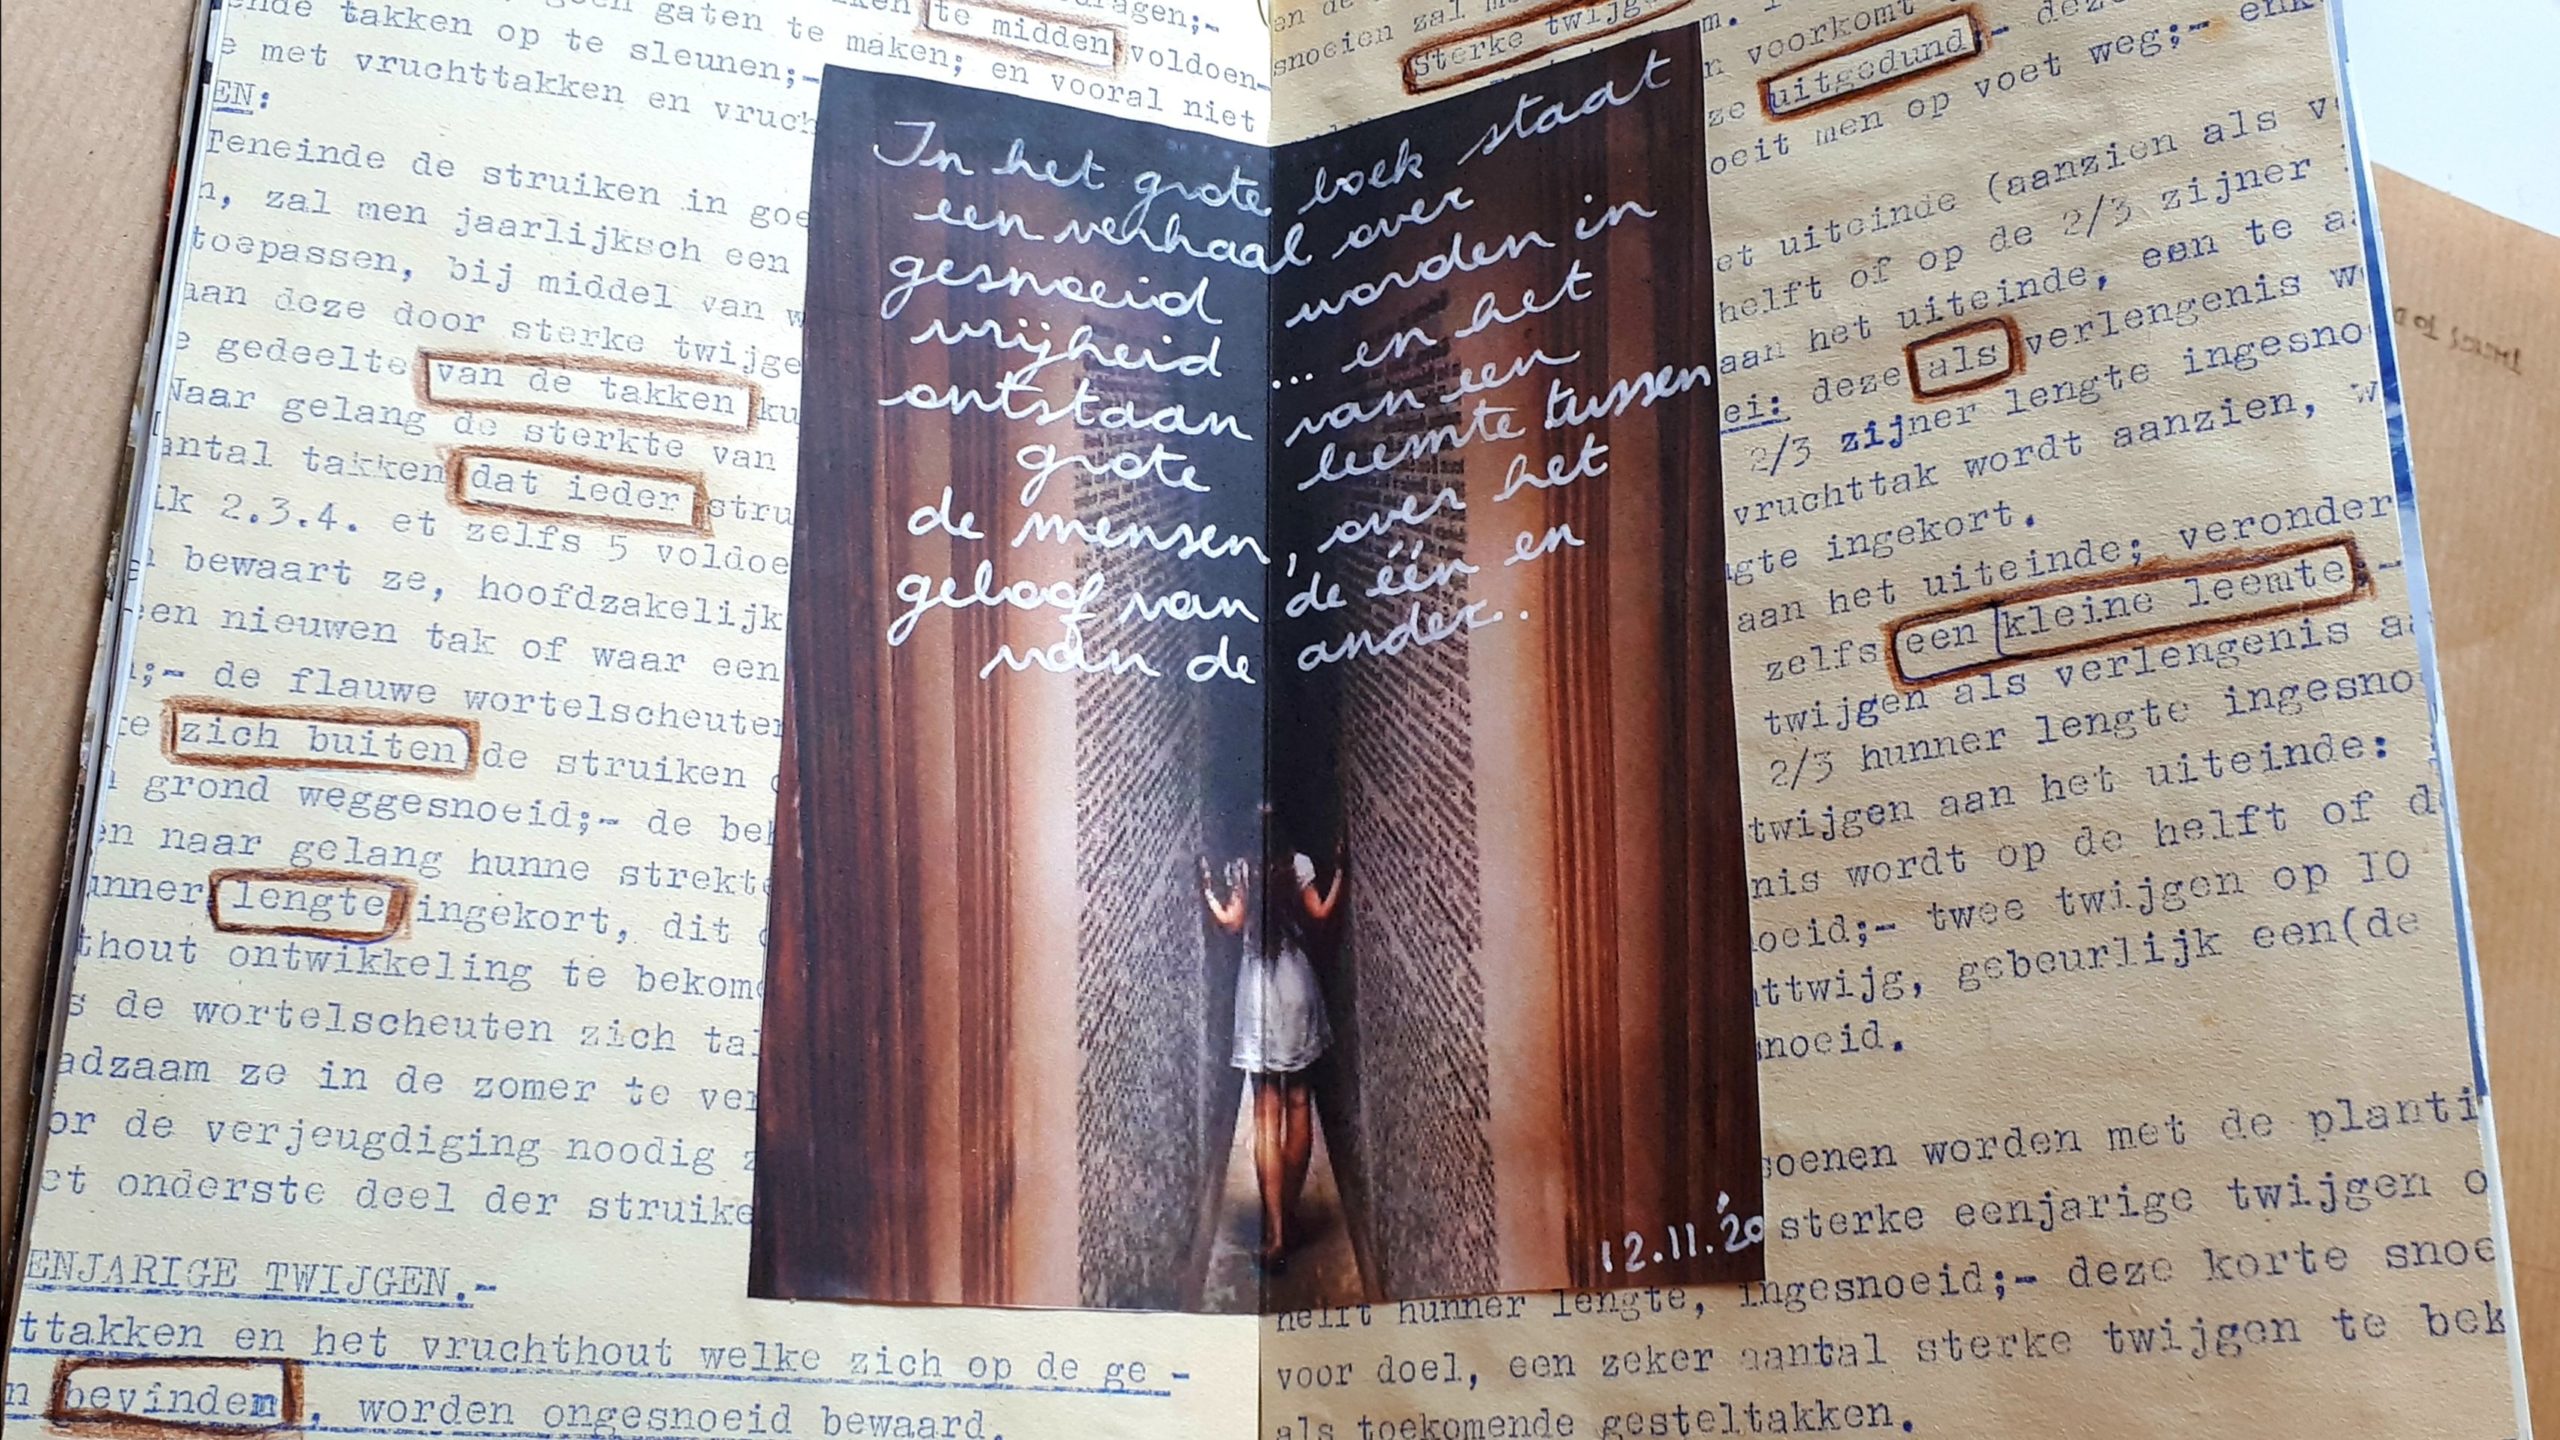 te midden voldoen-
takken op te sleunen;- gaten te maken; en vooral niet
e met vruchttakken en
EN:
Teneinde de struiken in
n, zal men jaarlijksch een
toepassen, bij middel van
aan deze door sterke
e gedeelte van de takken
Naar gelang de sterkte van
antal takken dat ieder
ik 2.3.4. et zelfs 5
bewaart ze, hoofdzakelijk
een nieuwen tak of waar een
;- de flauwe
zich buiten de struiken
grond weggesnoeid;- de
en naar gelang hunne
unner lengte ingekort, dit
thout ontwikkeling te
s de wortelscheuten zich
adzaam ze in de zomer te
or de verjeugdiging noodig
et onderste deel der
ENJARIGE TWIJGEN.-
ttakken en het vruchthout welke zich op de ge -
n bevinden, worden ongesnoeid bewaard.
In het grote boek staat
een verhaal over
gesnoeid worden in
vrijheid ... en het
ontstaan van een
grote leemte tussen
de mensen, over het
geloof van de één en
van de ander..
12.11.'20
snoeien zal
Sterke
voorkomt
ze uitgedund;-
oeit men op voet weg;-
et uiteinde (aanzien als
helft of op de 2/3 zijner
aan het uiteinde, een te
ei: deze als verlengenis
2/3 zijner lengte
vruchttak wordt aanzien,
gte ingekort.
aan het uiteinde;
zelfs een kleine leemte;-
twijgen als verlengenis
2/3 hunner lengte
twijgen aan het uiteinde:
nis wordt op de helft of
oeid;- twee twijgen op IO
ttwijg, gebeurlijk een(de
noeid.
soenen worden met de
sterke eenjarige twijgen
helft hunner lengte, ingesnoeid;- deze korte
voor doel, een zeker aantal sterke twijgen te
als toekomende gesteltakken.